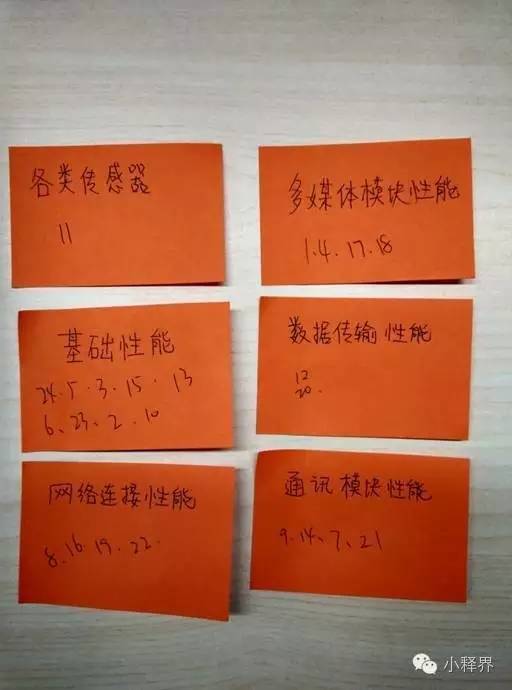 各类传感器
11
多媒体模块性能
1.4.17.18
基础性能
24.5.3.15.13
6、23、2.10
数据传输性能
12
20.
网络连接性能
8.16.19.22.
通讯模块性能
9.14、7、21
小释界